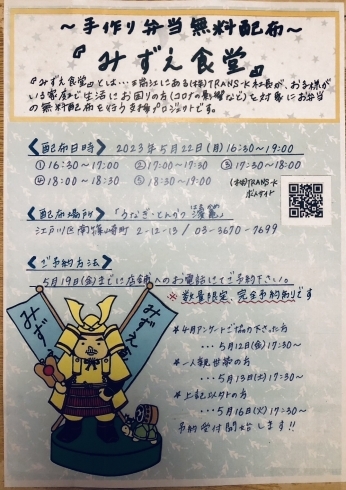 ～手作り弁当無料配布～
『みずえ食堂』
『みずえ食堂』とは…瑞江にある(株)TRANS-K社長が、お子様が
いる家庭で生活にお困りの方(コロナの影響など)を対象にお弁当
の無料配布を行う支援プロジェクトです。
＜配布日時＞ 2023年5月22日(月)16:30～19:00
①16:30～17:00 ②17:00～17:30 ③17:30～18:00
④18:00～18:30 ⑤18:30～19:00
(株)TRANS-K
＜配布場所＞ 「うなぎ・とんかつ
江戸川区南篠崎町2-12-13/03-3670-7699
＜ご予約方法＞
5月19日(金)までに店舗へのお電話にてご予約下さい。
※数量限定、完全予約制です
みずえ
みずえ
*4月アンケートご協力下さった方
・・・5月12日(金)17:30～
*一人親世帯の方
・・・5月13日(土)17:30～
*上記以外の方
・・・5月16日(火)17:30～
予約受付開始します!!